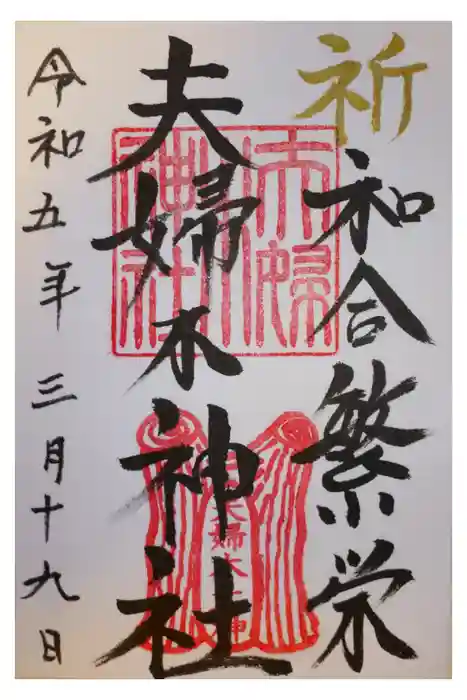 祈
和合繁栄
夫婦木神社
夫婦木神社
令和五年三月十九日